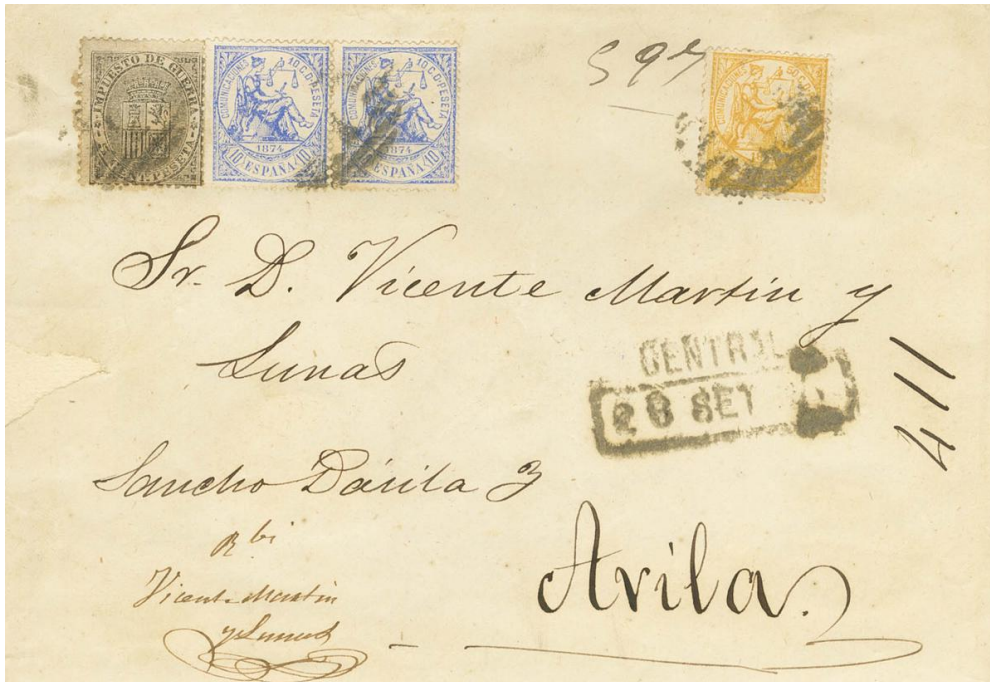 IMPUESTO DE GUERRA
5 CENT. PESETA 5
COMUNICACIONES 10 C. D PESETA
1874
10 ESPAÑA 10
COMUNICACIONES 10 C. D PESETA
1874
10 ESPAÑA 10
COMUNICACIONES 50 C. D PESETA
1874
ESPAÑA
597
Sr. D. Vicente Martin y
Lunas
CENTRAL
28 SET
411
Sancho Dávila 3
Rbi
Vicente Martin
y Lunas
Avila.